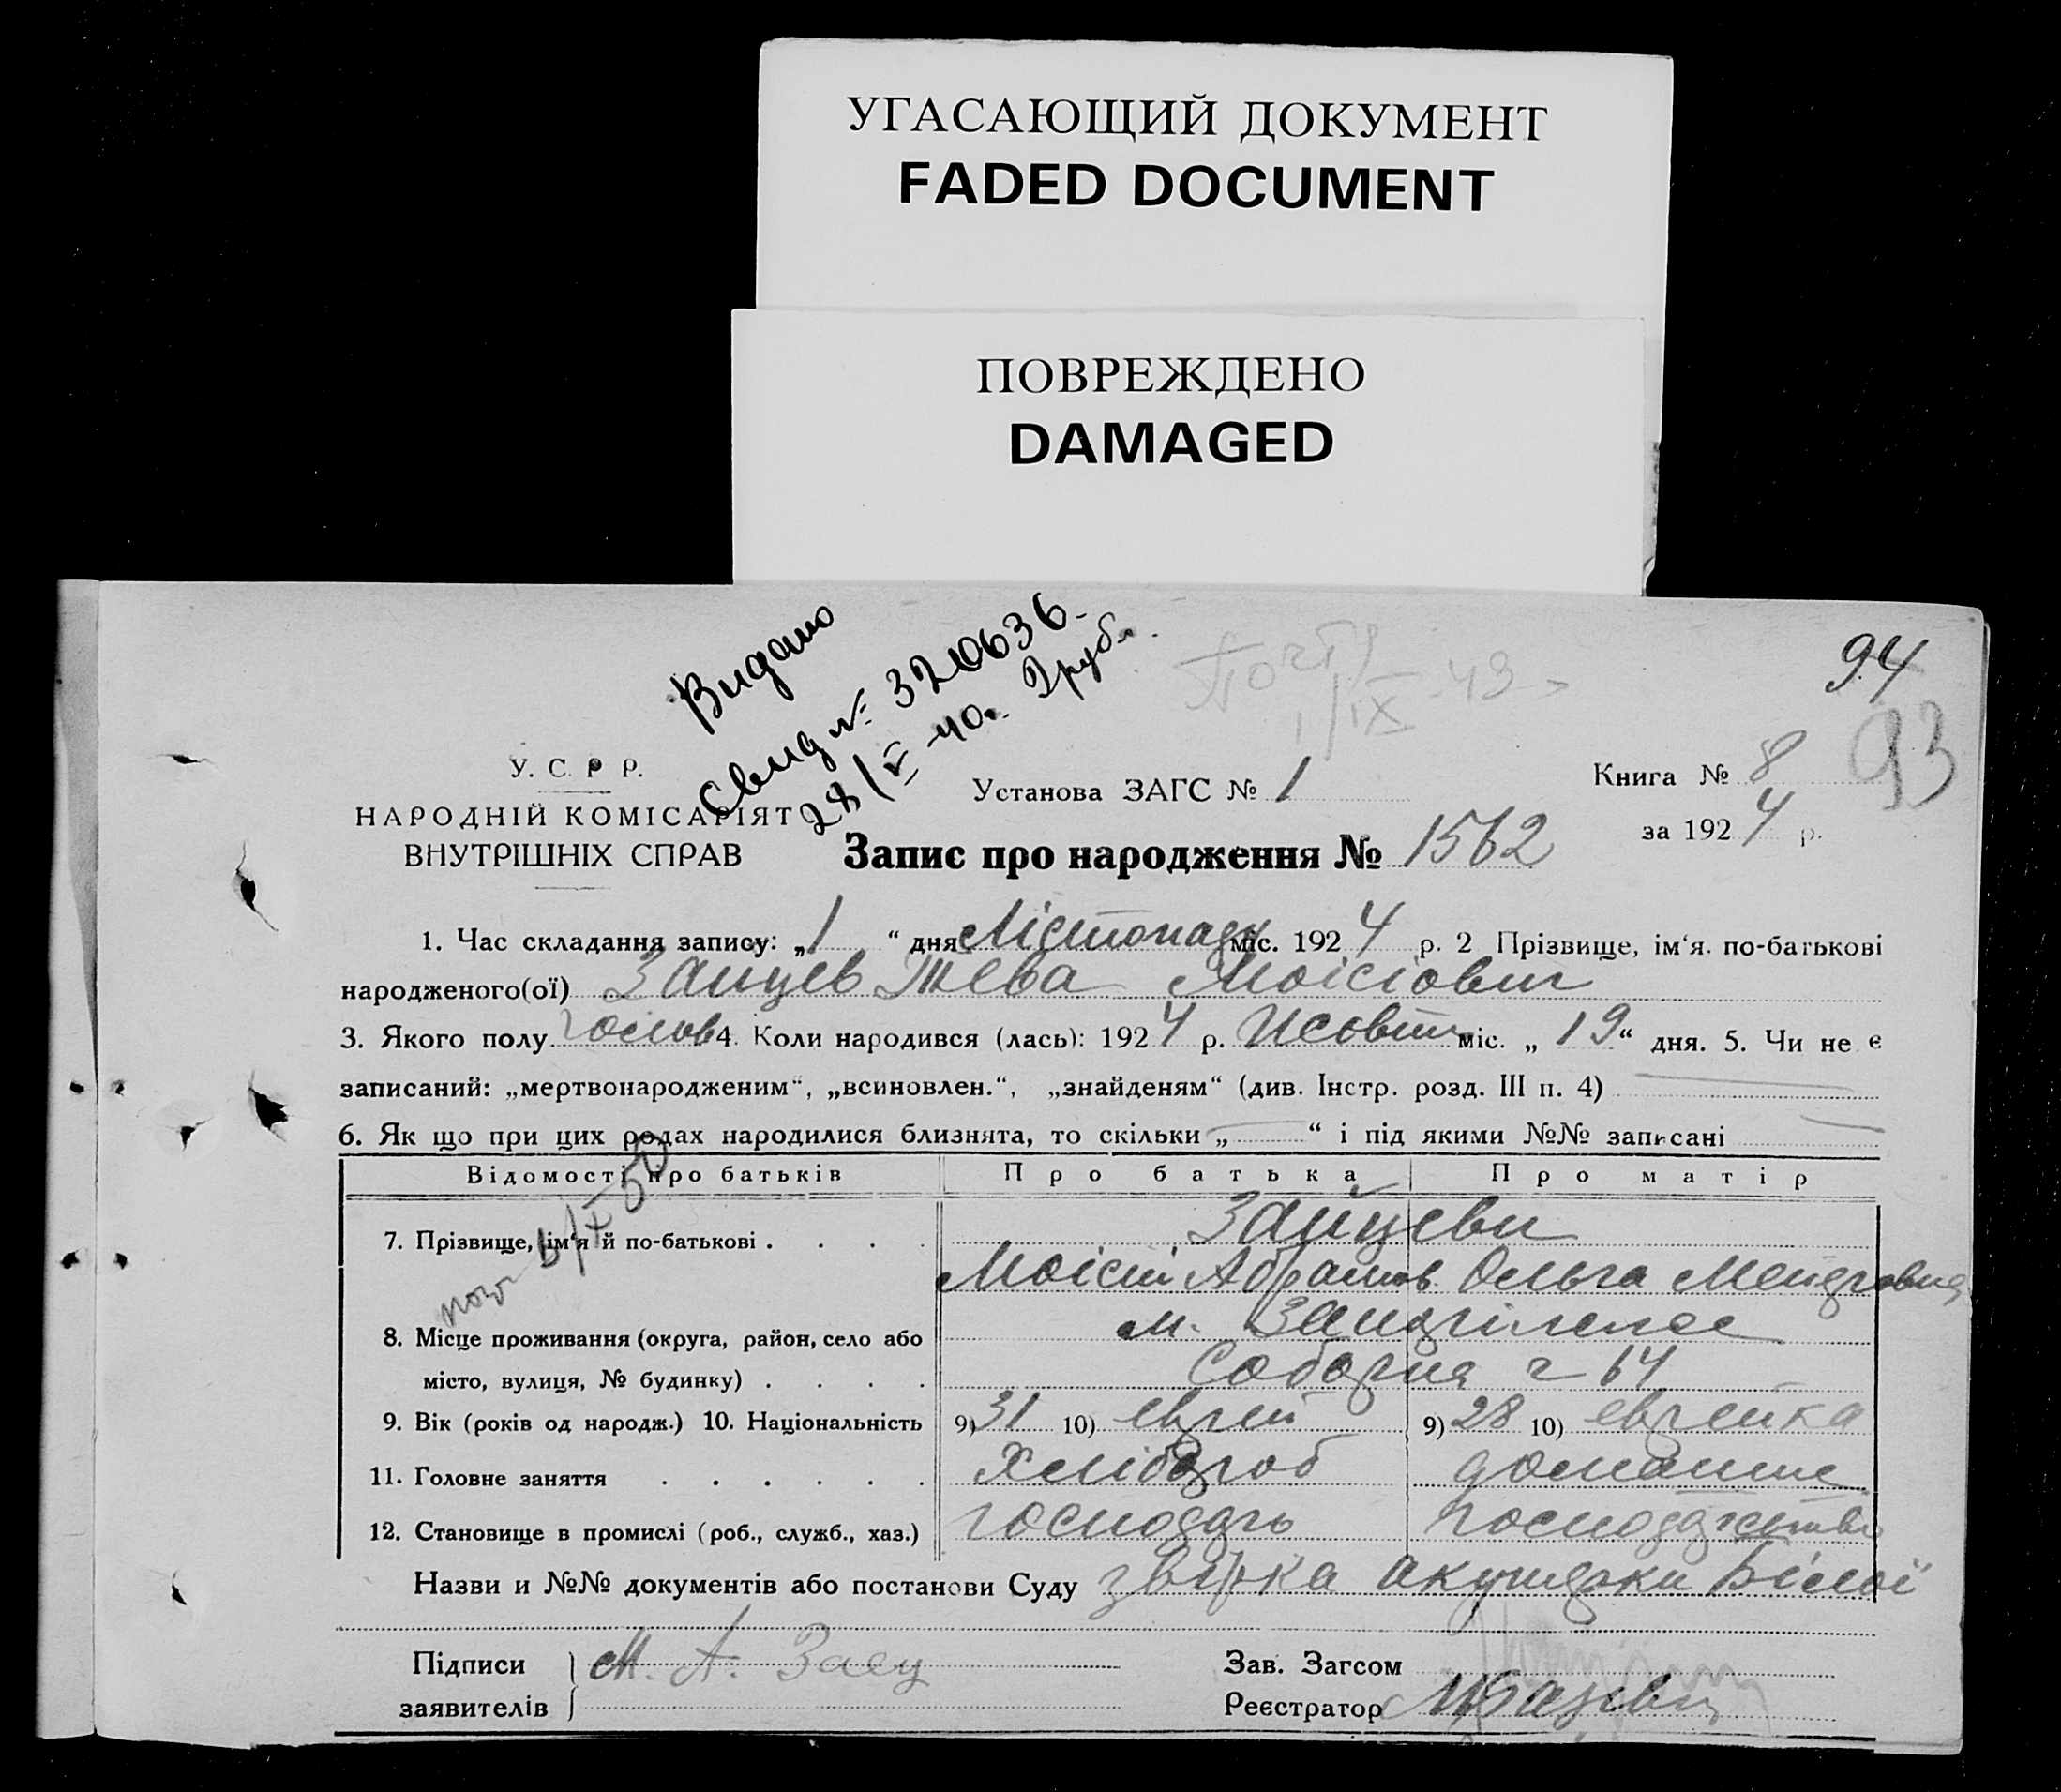 УГАСАЮЩИЙ ДОКУМЕНТ
FADED DOCUMENT
ПОВРЕЖДЕНО
DAMAGED
Видано
Свид № 320636.
28/V-40. 2 руб.
1/IX 43
94
93
У. С. Р Р.
НАРОДНІЙ КОМІСАРІЯТ
ВНУТРІШНІХ СПРАВ
Установа ЗАГС № 1
Книга № 8
за 1924 р.
Запис про народження № 1562
1. Час складання запису: „1“ дня Лістопаду міс. 1924 р. 2 Прізвище, ім‘я. по-батькові
народженого(ої) Зайцев Моісіович
3. Якого полу чолов 4. Коли народився (лась): 1924 р. Жовтн міс. „19“ дня. 5. Чи не є
записаний: „мертвонародженим“, „всиновлен.“, „знайденям“ (див. Інстр. розд. III п. 4)
6. Як що при цих родах народилися близнята, то скільки „ “ і під якими №№ записані
Відомості про батьків Про батька Про матір
7. Прізвище, ім‘я й по-батькові . . . . Зайцеви
Моісей Абрамов. Ольга
8. Місце проживання (округа, район, село або м.
місто, вулиця, № будинку) . . . . Соборна 64
9. Вік (років од народж.) 10. Національність 9) 31 10) еврей 9) 28 10) еврейка
11. Головне заняття . . . . . . Хлібороб домашне
12. Становище в промислі (роб., служб., хаз.) господарь господарство
Назви и №№ документів або постанови Суду акушерки Білої
Підписи М. А. Заец
заявителів
Зав. Загсом
Реєстратор